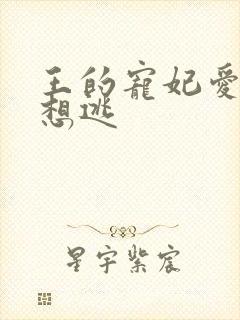 王的寵妃愛
想逃
星宇紫宸